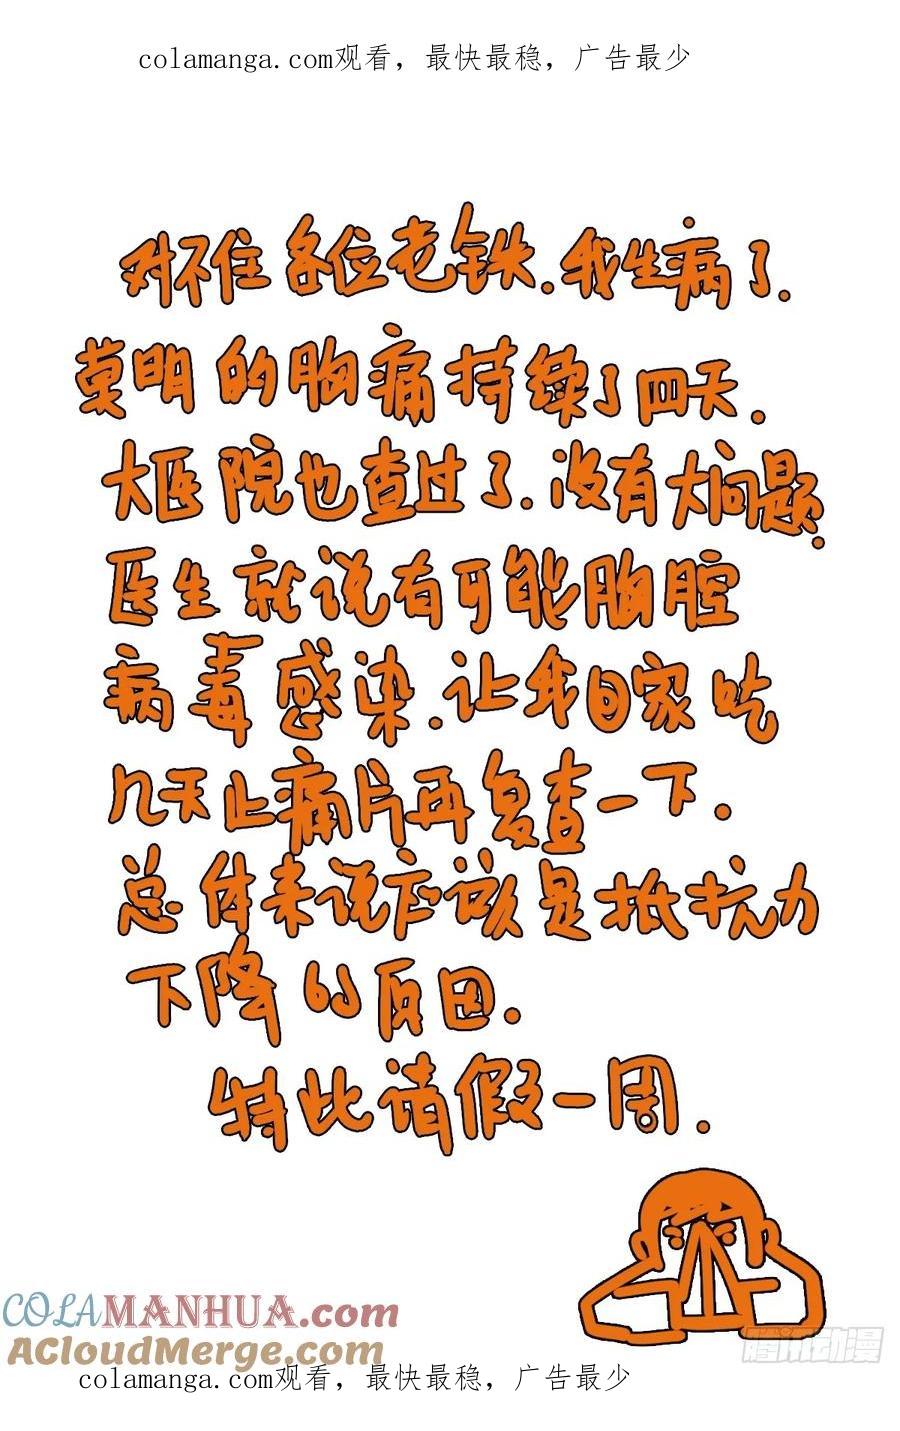 colamanga.com观看，最快最稳，广告最少
对不住各位老铁.我生病了.
莫明的胸痛持续了四天.
大医院也查过了.没有大问题.
医生就说有可能胸腔
病毒感染.让我回家吃
几天止痛片再复查一下.
总体来说应该是抵抗力
下降的反因.
特此请假一周.
COLAMANHUA.com
ACloudMerge.com
腾讯动漫
colamanga.com观看，最快最稳，广告最少